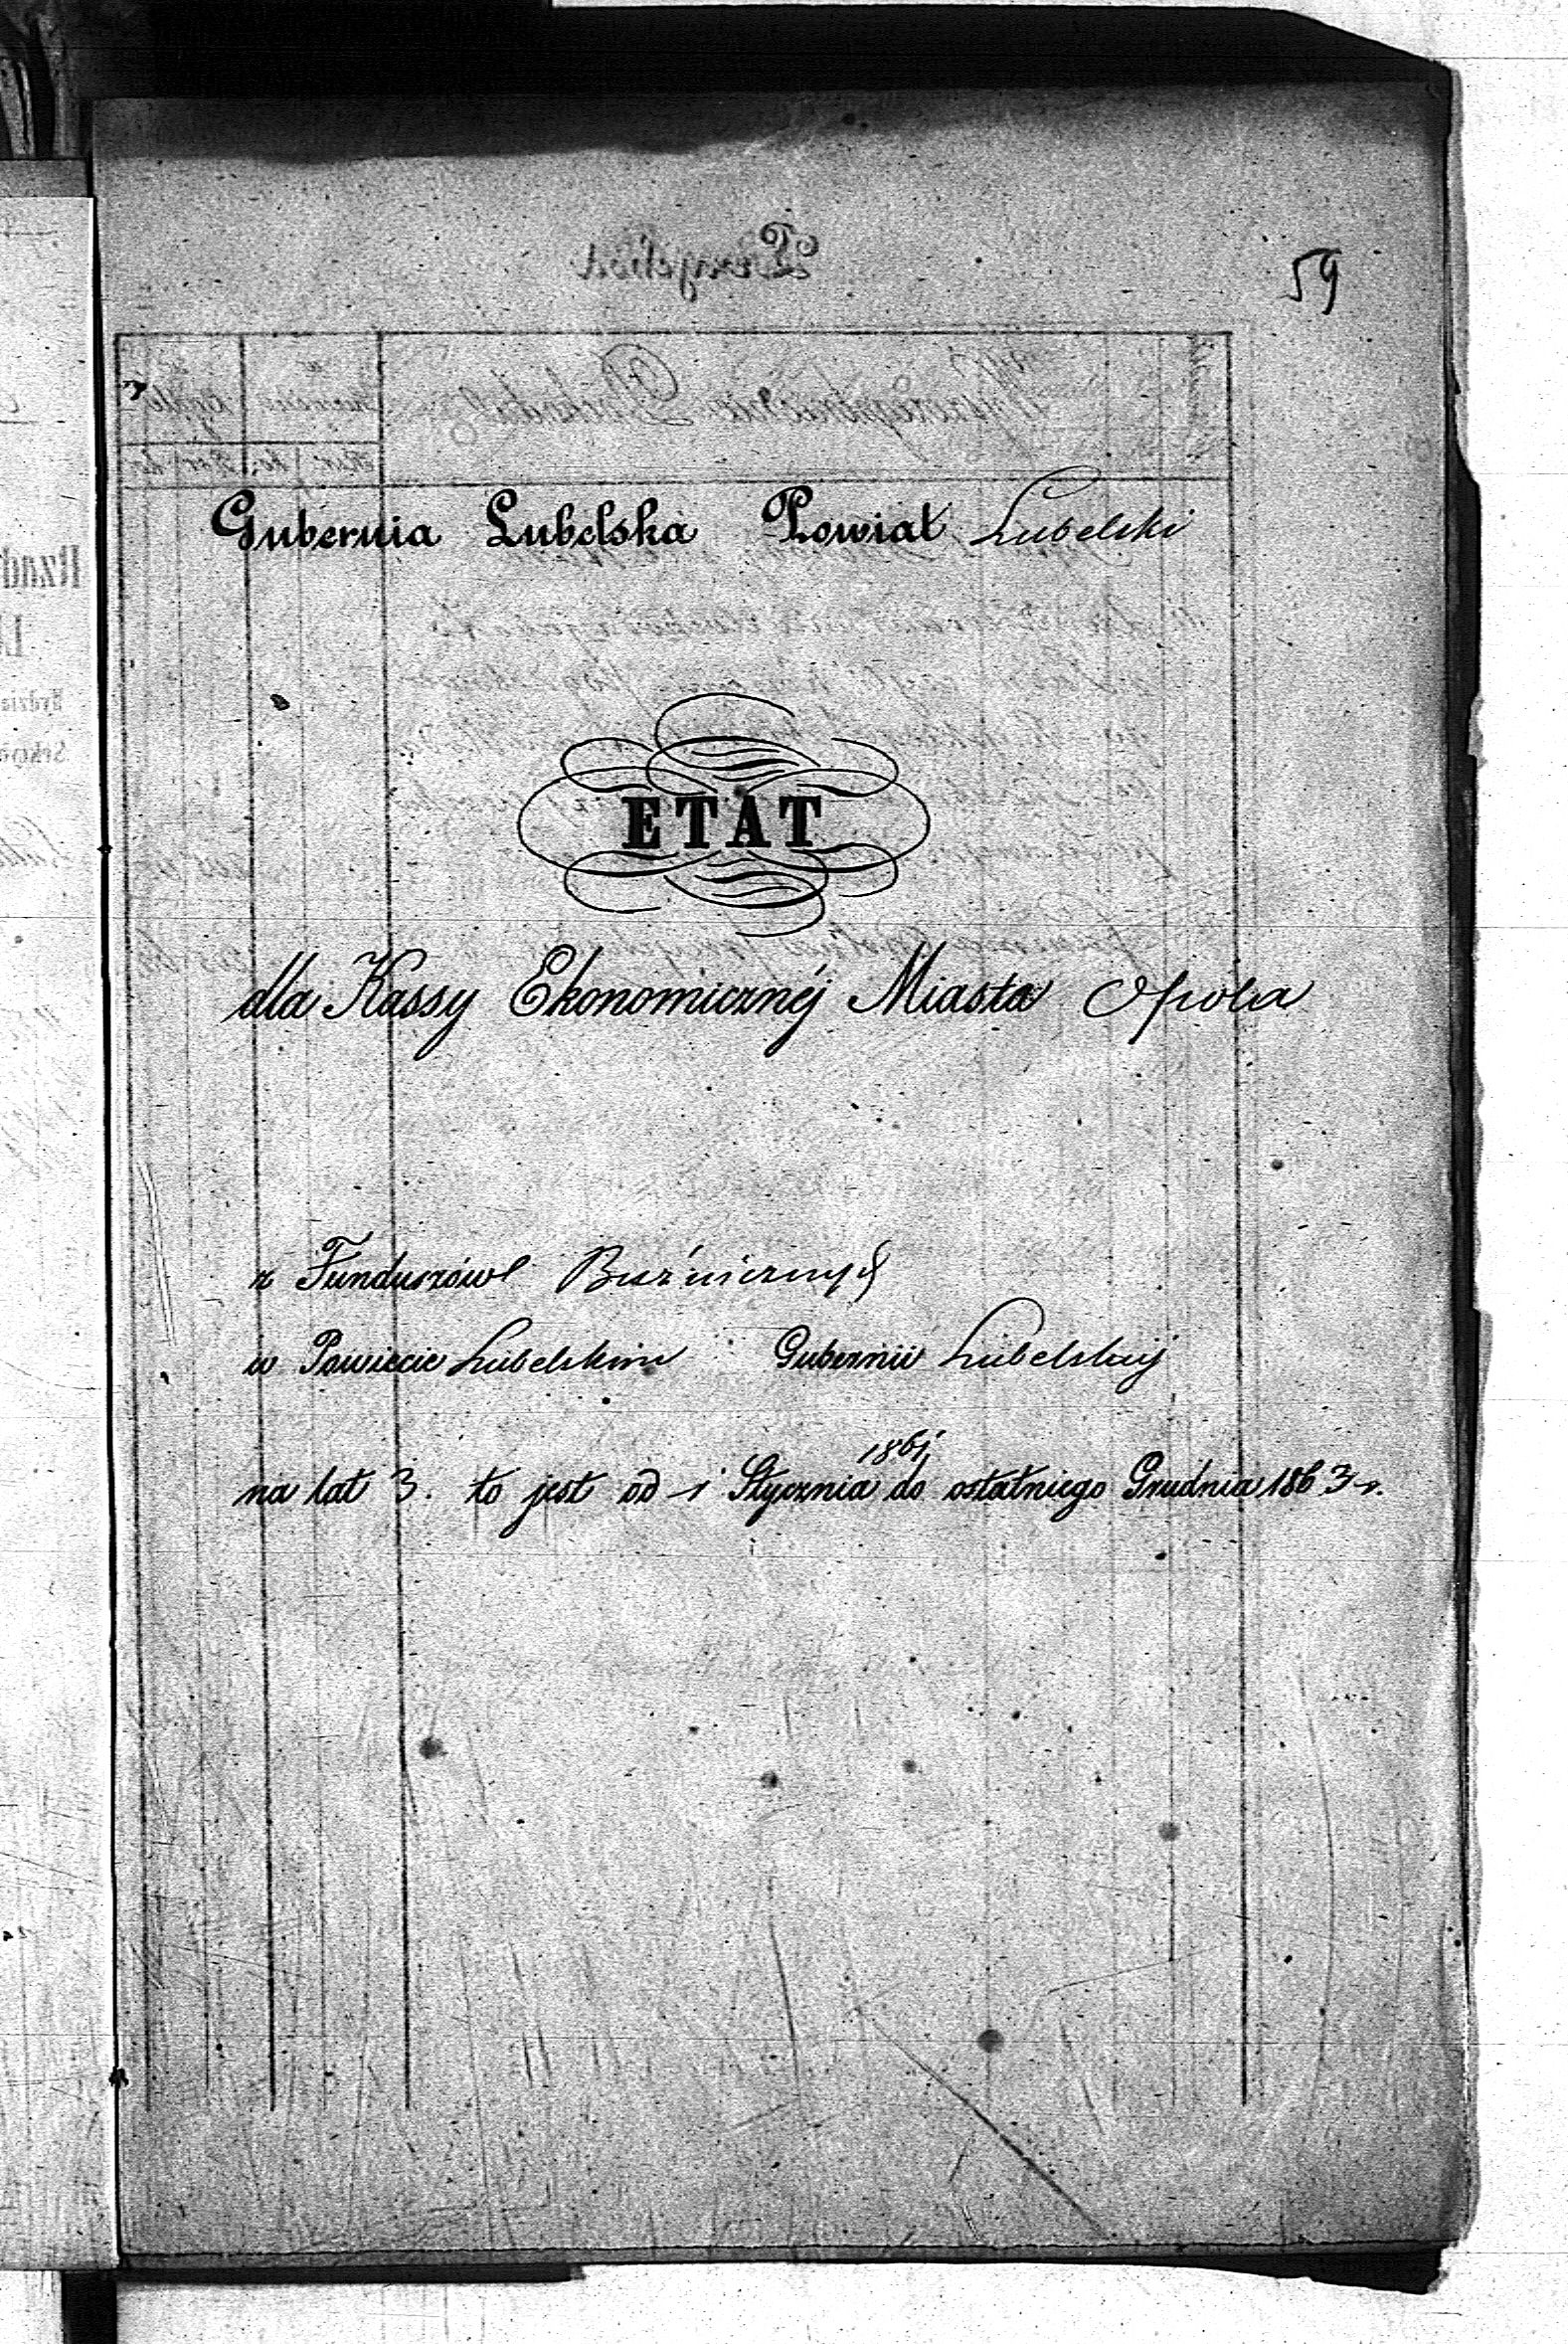 59
Gubernia Lubelska Powiat Lubelski
ETAT
dla Kassy Ekonomicznéj Miasta Opola
z Funduszów Bużnicznych
w Powiecie Lubelskim Gubernii Lubelskiej
1861
na lat 3. to jest od 1 Stycznia do ostatniego Grudnia 1863 r.